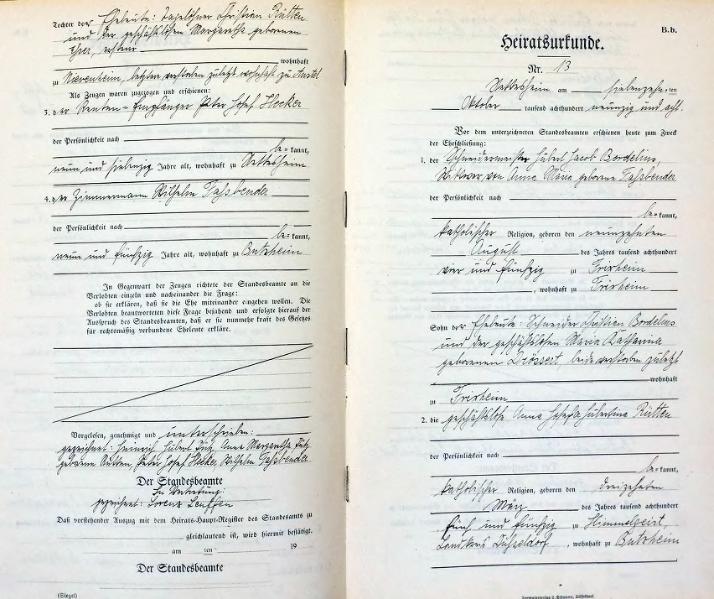 Tochter der Eheleute: Tagelöhner Christian Rütten
und der geschäftslosen Margaretha geborenen
wohnhaft
zu Nievenheim, letztere verstorben zuletzt wohnhaft zu
Als Zeugen waren zugezogen und erschienen:
3. der Renten-Empfänger Peter Josef Hecker
der Persönlichkeit nach
be-kannt,
neun und siebenzig Jahre alt, wohnhaft zu Nettesheim
4. der Zimmermann Wilhelm Fassbender
der Persönlichkeit nach
be-kannt,
neun und fünfzig Jahre alt, wohnhaft zu Butzheim
In Gegenwart der Zeugen richtete der Standesbeamte an die
Verlobten einzeln und nacheinander die Frage:
ob sie erklären, daß sie die Ehe miteinander eingehen wollen. Die
Verlobten beantworteten diese Frage bejahend und erfolgte hierauf der
Ausspruch des Standesbeamten, daß er sie nunmehr kraft des Gesetzes
für rechtsmäßig verbundene Eheleute erkläre.
Vorgelesen, genehmigt und unterschrieben:
gezeichnet: Heinrich Hubert Anna Margaretha
geborene Rütten, Peter Josef Hecker, Wilhelm Fassbender
Der Standesbeamte
In Vertretung
gezeichnet: Lorenz Leuffen
Daß vorstehender Auszug mit dem Heirats-Haupt-Register des Standesamts zu
gleichlautend ist, wird hiermit bestätigt.
am ten 19
Der Standesbeamte
(Siegel)
B.b.
Heiratsurkunde.
Nr. 13
Nettesheim am siebenzehnten
Oktober tausend achthundert neunzig und acht.
Vor dem unterzeichneten Standesbeamten erschienen heute zum Zweck
der Eheschließung:
1. der Schneidermeister Hubert Jacob Bordelius,
Wittwer von Anna Maria geborene Fassbender
der Persönlichkeit nach
be-kannt,
katholischer Religion, geboren den neunzehnten
August des Jahres tausend achthundert
vier und fünfzig zu Frixheim
, wohnhaft zu Frixheim
Sohn der Eheleute: Schneider Christian Bordelius
und der geschäftslosen Maria Katharina
geborenen beide verstorben zuletzt
wohnhaft
zu Frixheim
2. die geschäftslose Anna Josefa Hubertina Rütten
der Persönlichkeit nach
be-kannt,
katholischer Religion, geboren den dreizehnten
März des Jahres tausend achthundert
fünf und fünfzig zu Himmelgeist,
Landkreis Düsseldorf, wohnhaft zu Butzheim